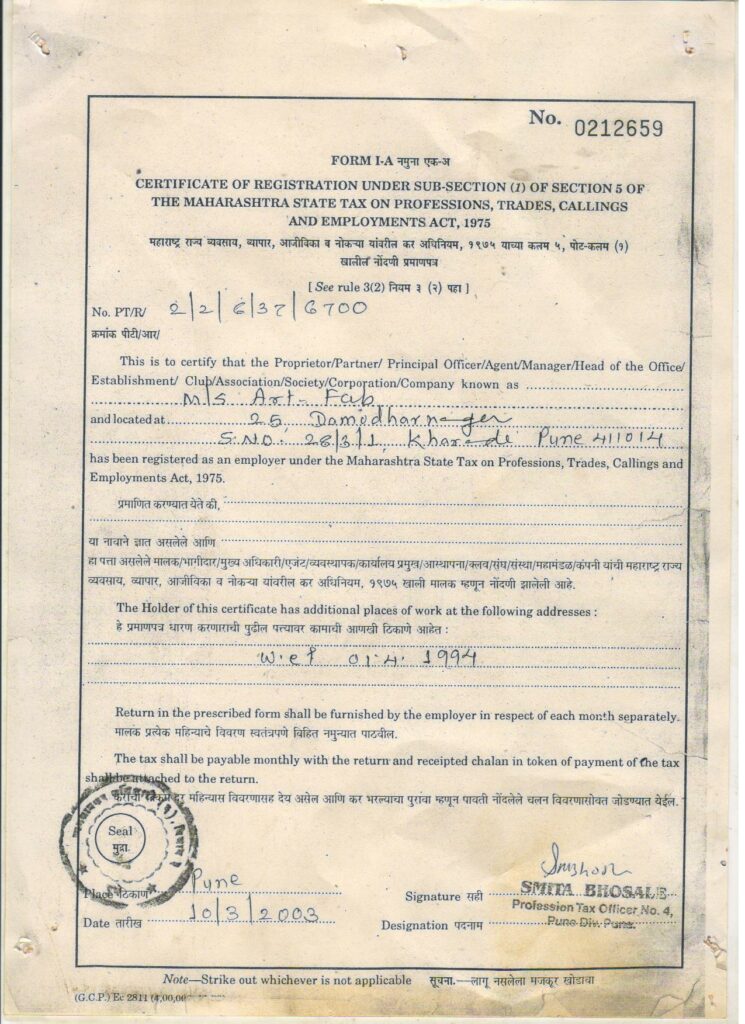 No. 0212659
FORM I-A नमुना एक-अ
CERTIFICATE OF REGISTRATION UNDER SUB-SECTION (1) OF SECTION 5 OF
THE MAHARASHTRA STATE TAX ON PROFESSIONS, TRADES, CALLINGS
AND EMPLOYMENTS ACT, 1975
महाराष्ट्र राज्य व्यवसाय, व्यापार, आजीविका व नोकऱ्या यांवरील कर अधिनियम, १९७५ याच्या कलम ५, पोट-कलम (१)
खालील नोंदणी प्रमाणपत्र
[ See rule 3(2) नियम ३ (२) पहा ]
No. PT/R/ 2/2/6/37/6700
क्रमांक पीटी/आर/
This is to certify that the Proprietor/Partner/ Principal Officer/Agent/Manager/Head of the Office/
Establishment/ Club/Association/Society/Corporation/Company known as
M/s Art-Fab
and located at 25, Damodharnager
S.NO. 28/3/1, Kharade Pune 411014
has been registered as an employer under the Maharashtra State Tax on Professions, Trades, Callings and
Employments Act, 1975.
प्रमाणित करण्यात येते की,
या नावाने ज्ञात असलेले आणि
हा पत्ता असलेले मालक/भागीदार/मुख्य अधिकारी/एजंट/व्यवस्थापक/कार्यालय प्रमुख/आस्थापना/क्लब/संघ/संस्था/महामंडळ/कंपनी यांची महाराष्ट्र राज्य
व्यवसाय, व्यापार, आजीविका व नोकऱ्या यांवरील कर अधिनियम, १९७५ खाली मालक म्हणून नोंदणी झालेली आहे.
The Holder of this certificate has additional places of work at the following addresses :
हे प्रमाणपत्र धारण करणाराची पुढील पत्त्यावर कामाची आणखी ठिकाणे आहेत :
w.e.f 01.4.1994
Return in the prescribed form shall be furnished by the employer in respect of each month separately.
मालक प्रत्येक महिन्याचे विवरण स्वतंत्रपणे विहित नमुन्यात पाठवील.
The tax shall be payable monthly with the return and receipted chalan in token of payment of the tax
shall be attached to the return.
कराची रक्कम दर महिन्यास विवरणासह देय असेल आणि कर भरल्याचा पुरावा म्हणून पावती नोंदलेले चलन विवरणासोबत जोडण्यात येईल.
Seal
मुद्रा
Place ठिकाण Pune
Signature सही SMITA BHOSALE
Profession Tax Officer No. 4,
Date तारीख 10/3/2003
Designation पदनाम Pune Div. Pune.
Note—Strike out whichever is not applicable सूचना.—लागू नसलेला मजकूर खोडावा
(G.C.P.) Ec 2811 (4,00,00